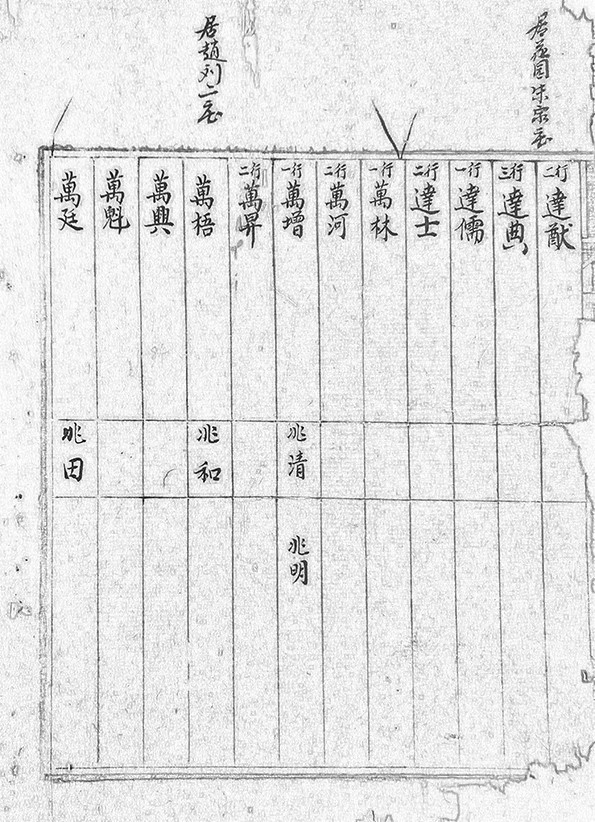 居花園朱家庄
居趙刘二庄
二行達猷
三行達典
一行達儒
二行達士
一行萬林
二行萬河
一行萬增
二行萬昇
萬梧
萬興
萬魁
萬廷
兆清
兆和
兆田
兆明